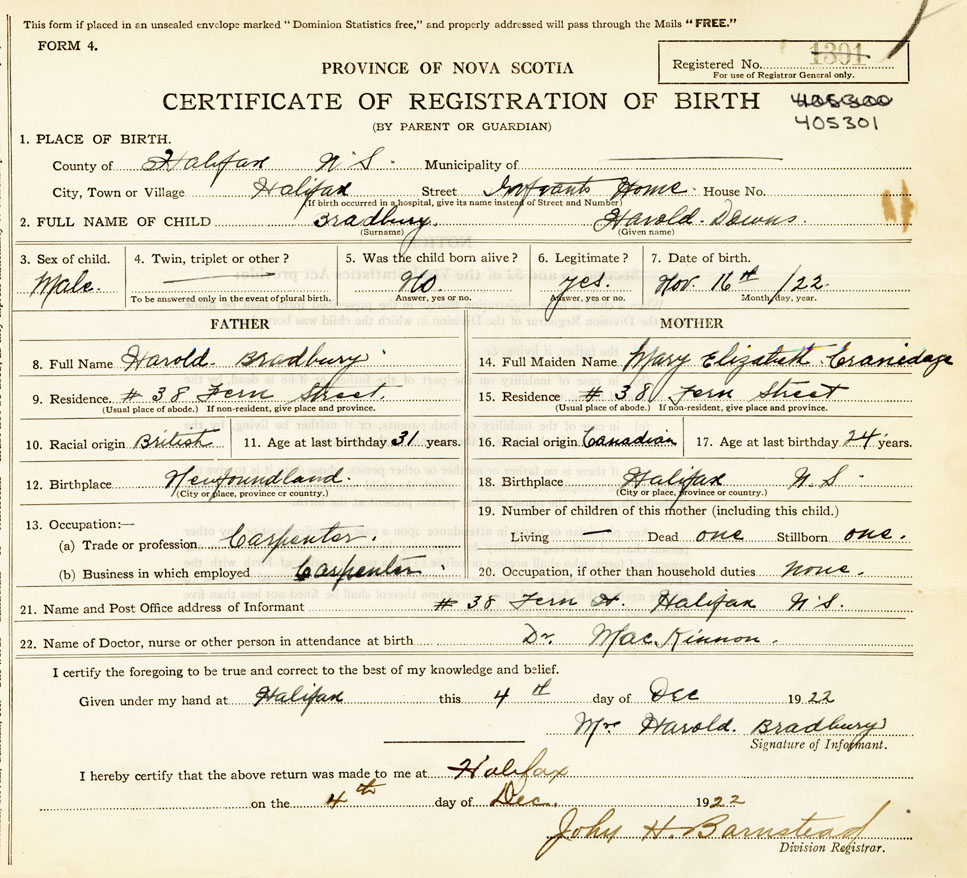 This form if placed in an unsealed envelope marked "Dominion Statistics free," and properly addressed will pass through the Mails "FREE."
FORM 4.
Registered No. 1301
For use of Registrar General only.
PROVINCE OF NOVA SCOTIA
CERTIFICATE OF REGISTRATION OF BIRTH 405300
(BY PARENT OR GUARDIAN) 405301
1. PLACE OF BIRTH.
County of Halifax N.S. Municipality of
City, Town or Village Halifax Street Infants Home. House No.
(If birth occurred in a hospital, give its name instead of Street and Number)
2. FULL NAME OF CHILD Bradbury. Harold. Downs.
(Surname) (Given name)
3. Sex of child. 4. Twin, triplet or other? 5. Was the child born alive? 6. Legitimate? 7. Date of birth.
Male. No. yes. Nov. 16th /22.
To be answered only in the event of plural birth. Answer, yes or no. Answer, yes or no. Month, day, year.
FATHER MOTHER
8. Full Name Harold. Bradbury 14. Full Maiden Name Mary Elizabeth
9. Residence. # 38 Fern Street. 15. Residence # 38 Fern Street
(Usual place of abode.) If non-resident, give place and province. (Usual place of abode.) If non-resident, give place and province.
10. Racial origin British 11. Age at last birthday 31 years. 16. Racial origin Canadian 17. Age at last birthday 24 years.
12. Birthplace Newfoundland. 18. Birthplace Halifax N.S.
(City or place, province or country.) (City or place, province or country.)
13. Occupation:— 19. Number of children of this mother (including this child.)
(a) Trade or profession Carpenter. Living — Dead one Stillborn one.
(b) Business in which employed Carpenter. 20. Occupation, if other than household duties None.
21. Name and Post Office address of Informant # 38 Fern St. Halifax N.S.
22. Name of Doctor, nurse or other person in attendance at birth Dr. MacKinnon.
I certify the foregoing to be true and correct to the best of my knowledge and belief.
Given under my hand at Halifax this 4th day of Dec 1922
Mrs Harold. Bradbury
Signature of Informant.
I hereby certify that the above return was made to me at Halifax
on the 4th day of Dec. 1922
John H. Barnstead
Division Registrar.